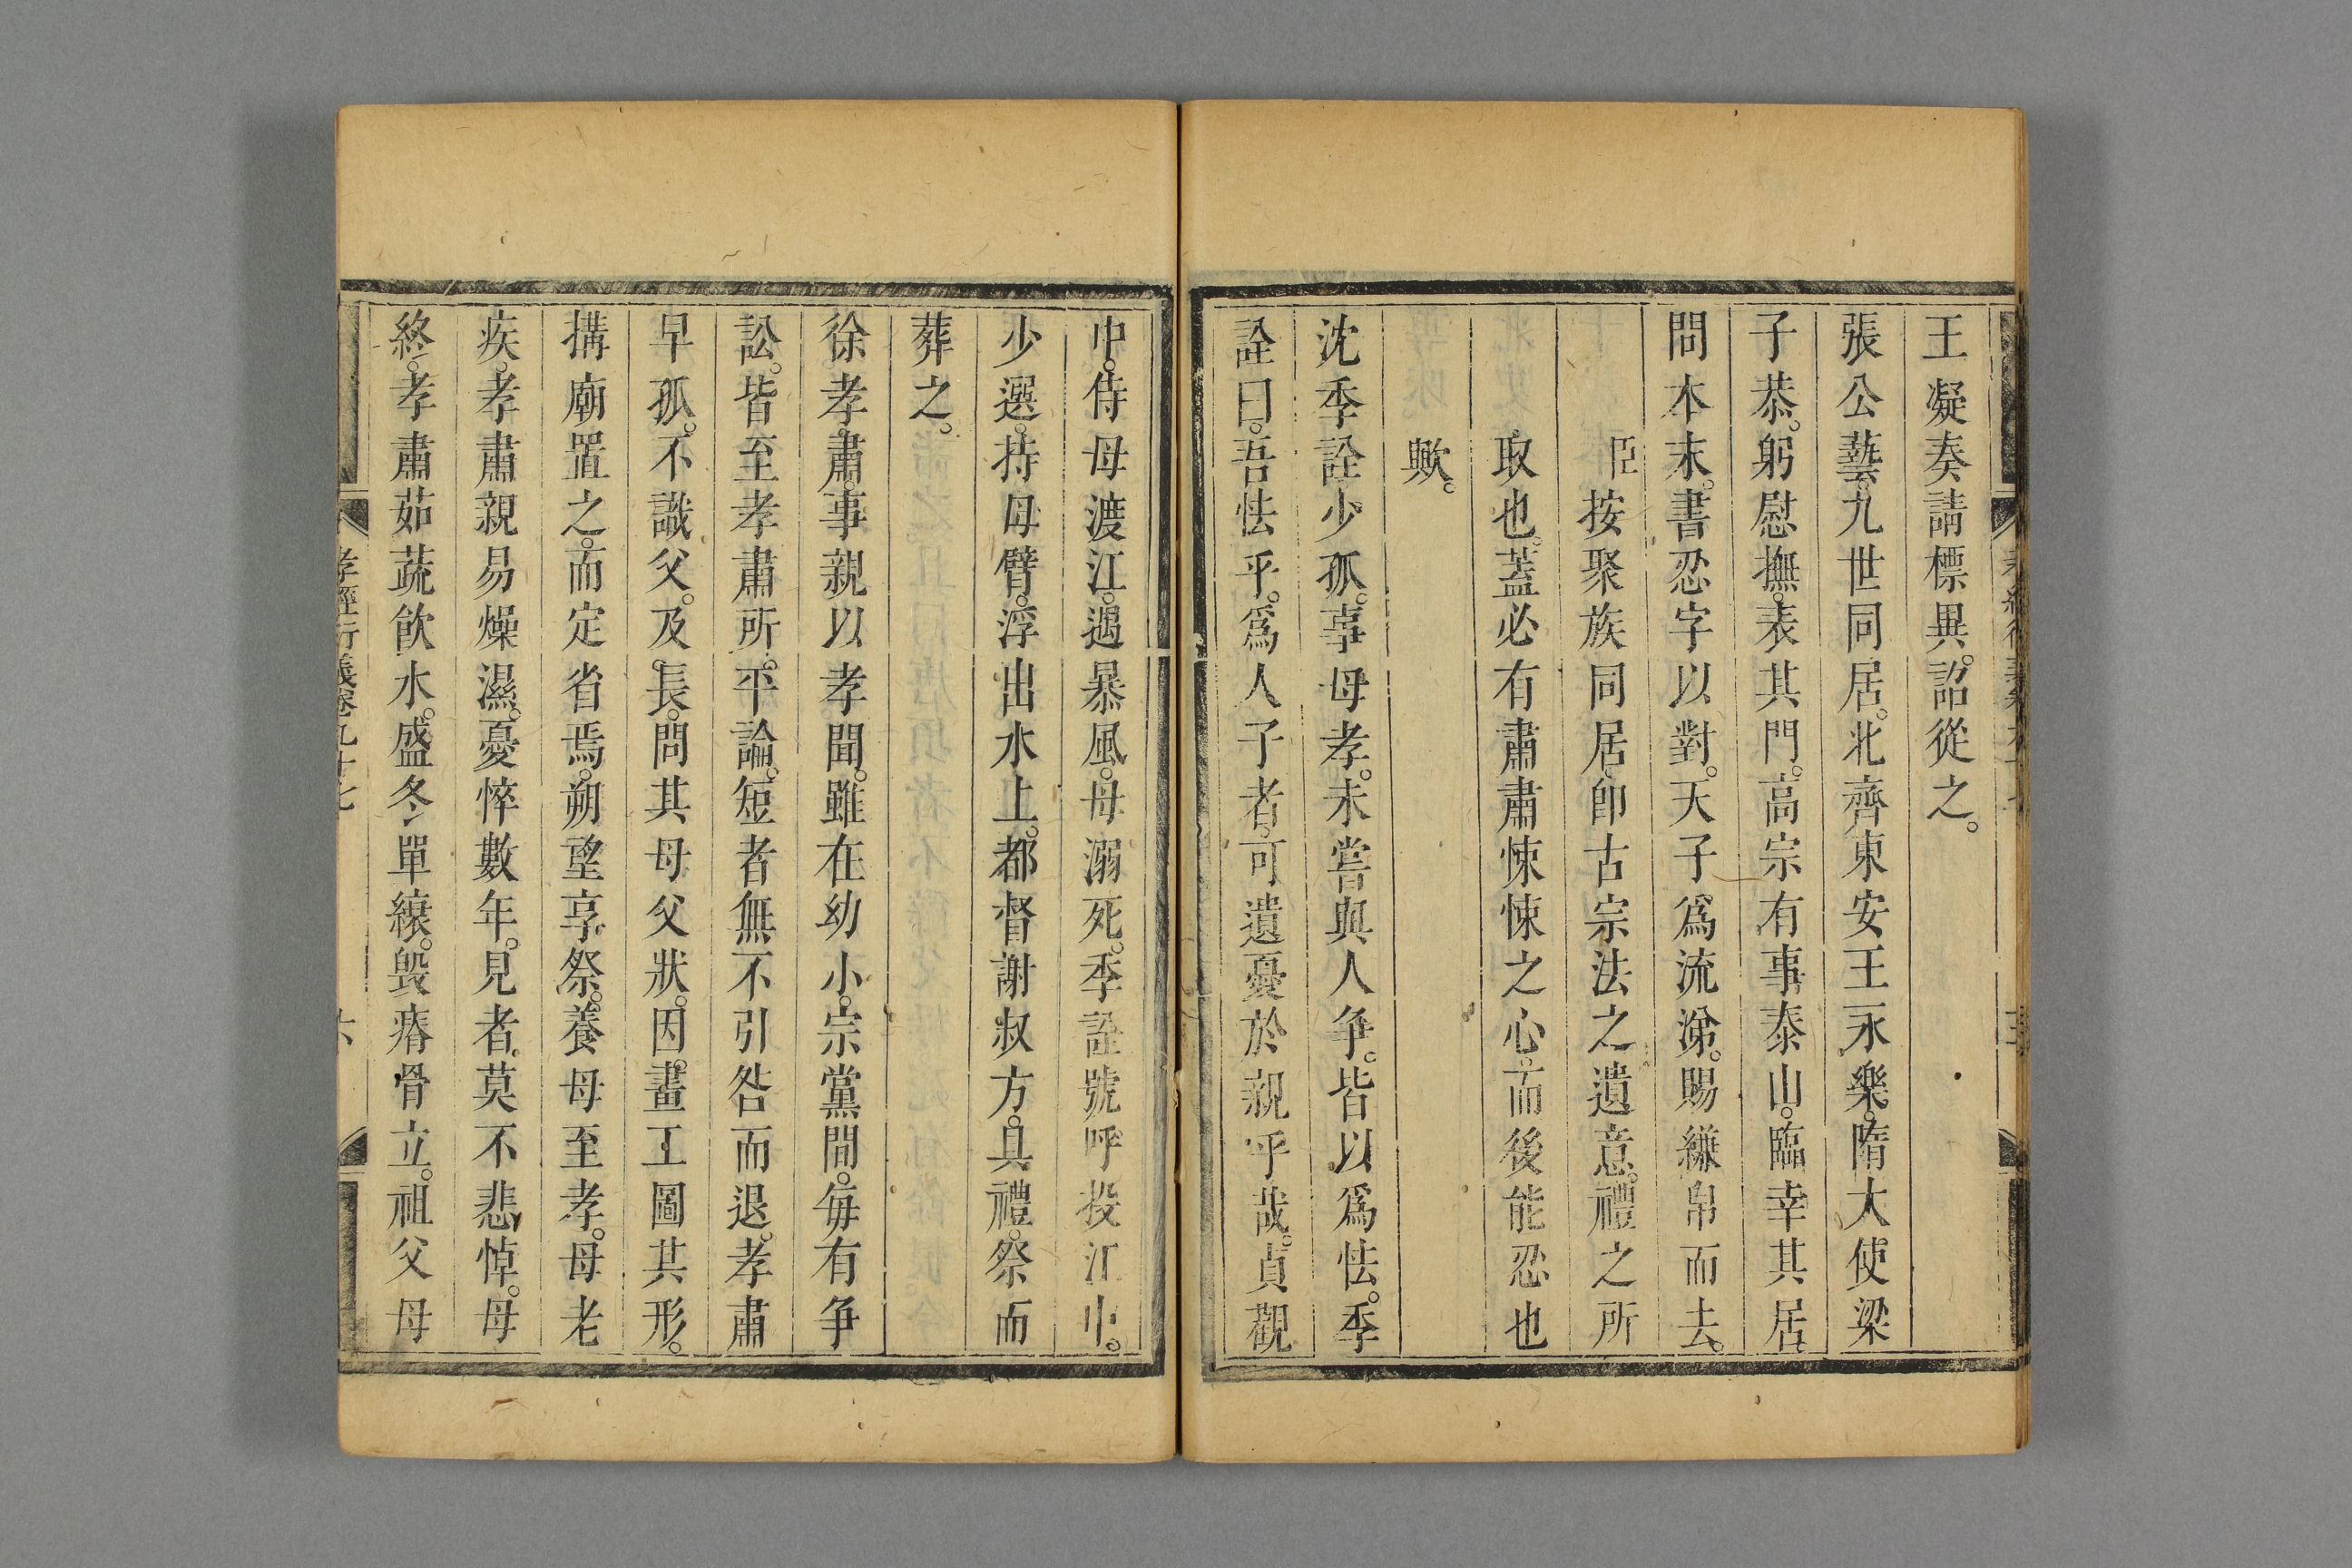 王凝奏請標異。詔從之。
張公藝。九世同居。北齊東安王永樂。隋大使梁
子恭。躬慰撫。表其門。高宗有事泰山。臨幸其居。
問本末。書忍字以對。天子爲流涕。賜縑帛而去。
臣按聚族同居。卽古宗法之遺意。禮之所
取也。蓋必有肅肅悚悚之心。而後能忍也
歟。
沈季詮少孤。事母孝。未嘗與人爭。皆以爲怯。季
詮曰。吾怯乎。爲人子者。可遺憂於親乎哉。貞觀
中。侍母渡江。遇暴風。母溺死。季詮號呼投江中。
少選。持母臂。浮出水上。都督謝叔方。具禮。祭而
葬之。
徐孝肅。事親以孝聞。雖在幼小。宗黨間。每有爭
訟。皆至孝肅所。平論。短者無不引咎而退。孝肅
早孤。不識父。及長。問其母父狀。因畫工圖其形。
搆廟置之。而定省焉。朔望享祭。養母至孝。母老
疾。孝肅親易燥濕。憂悴數年。見者莫不悲悼。母
終。孝肅茹蔬飲水。盛冬單縗。毀瘠骨立。祖父母
孝經衍義卷九十七 六